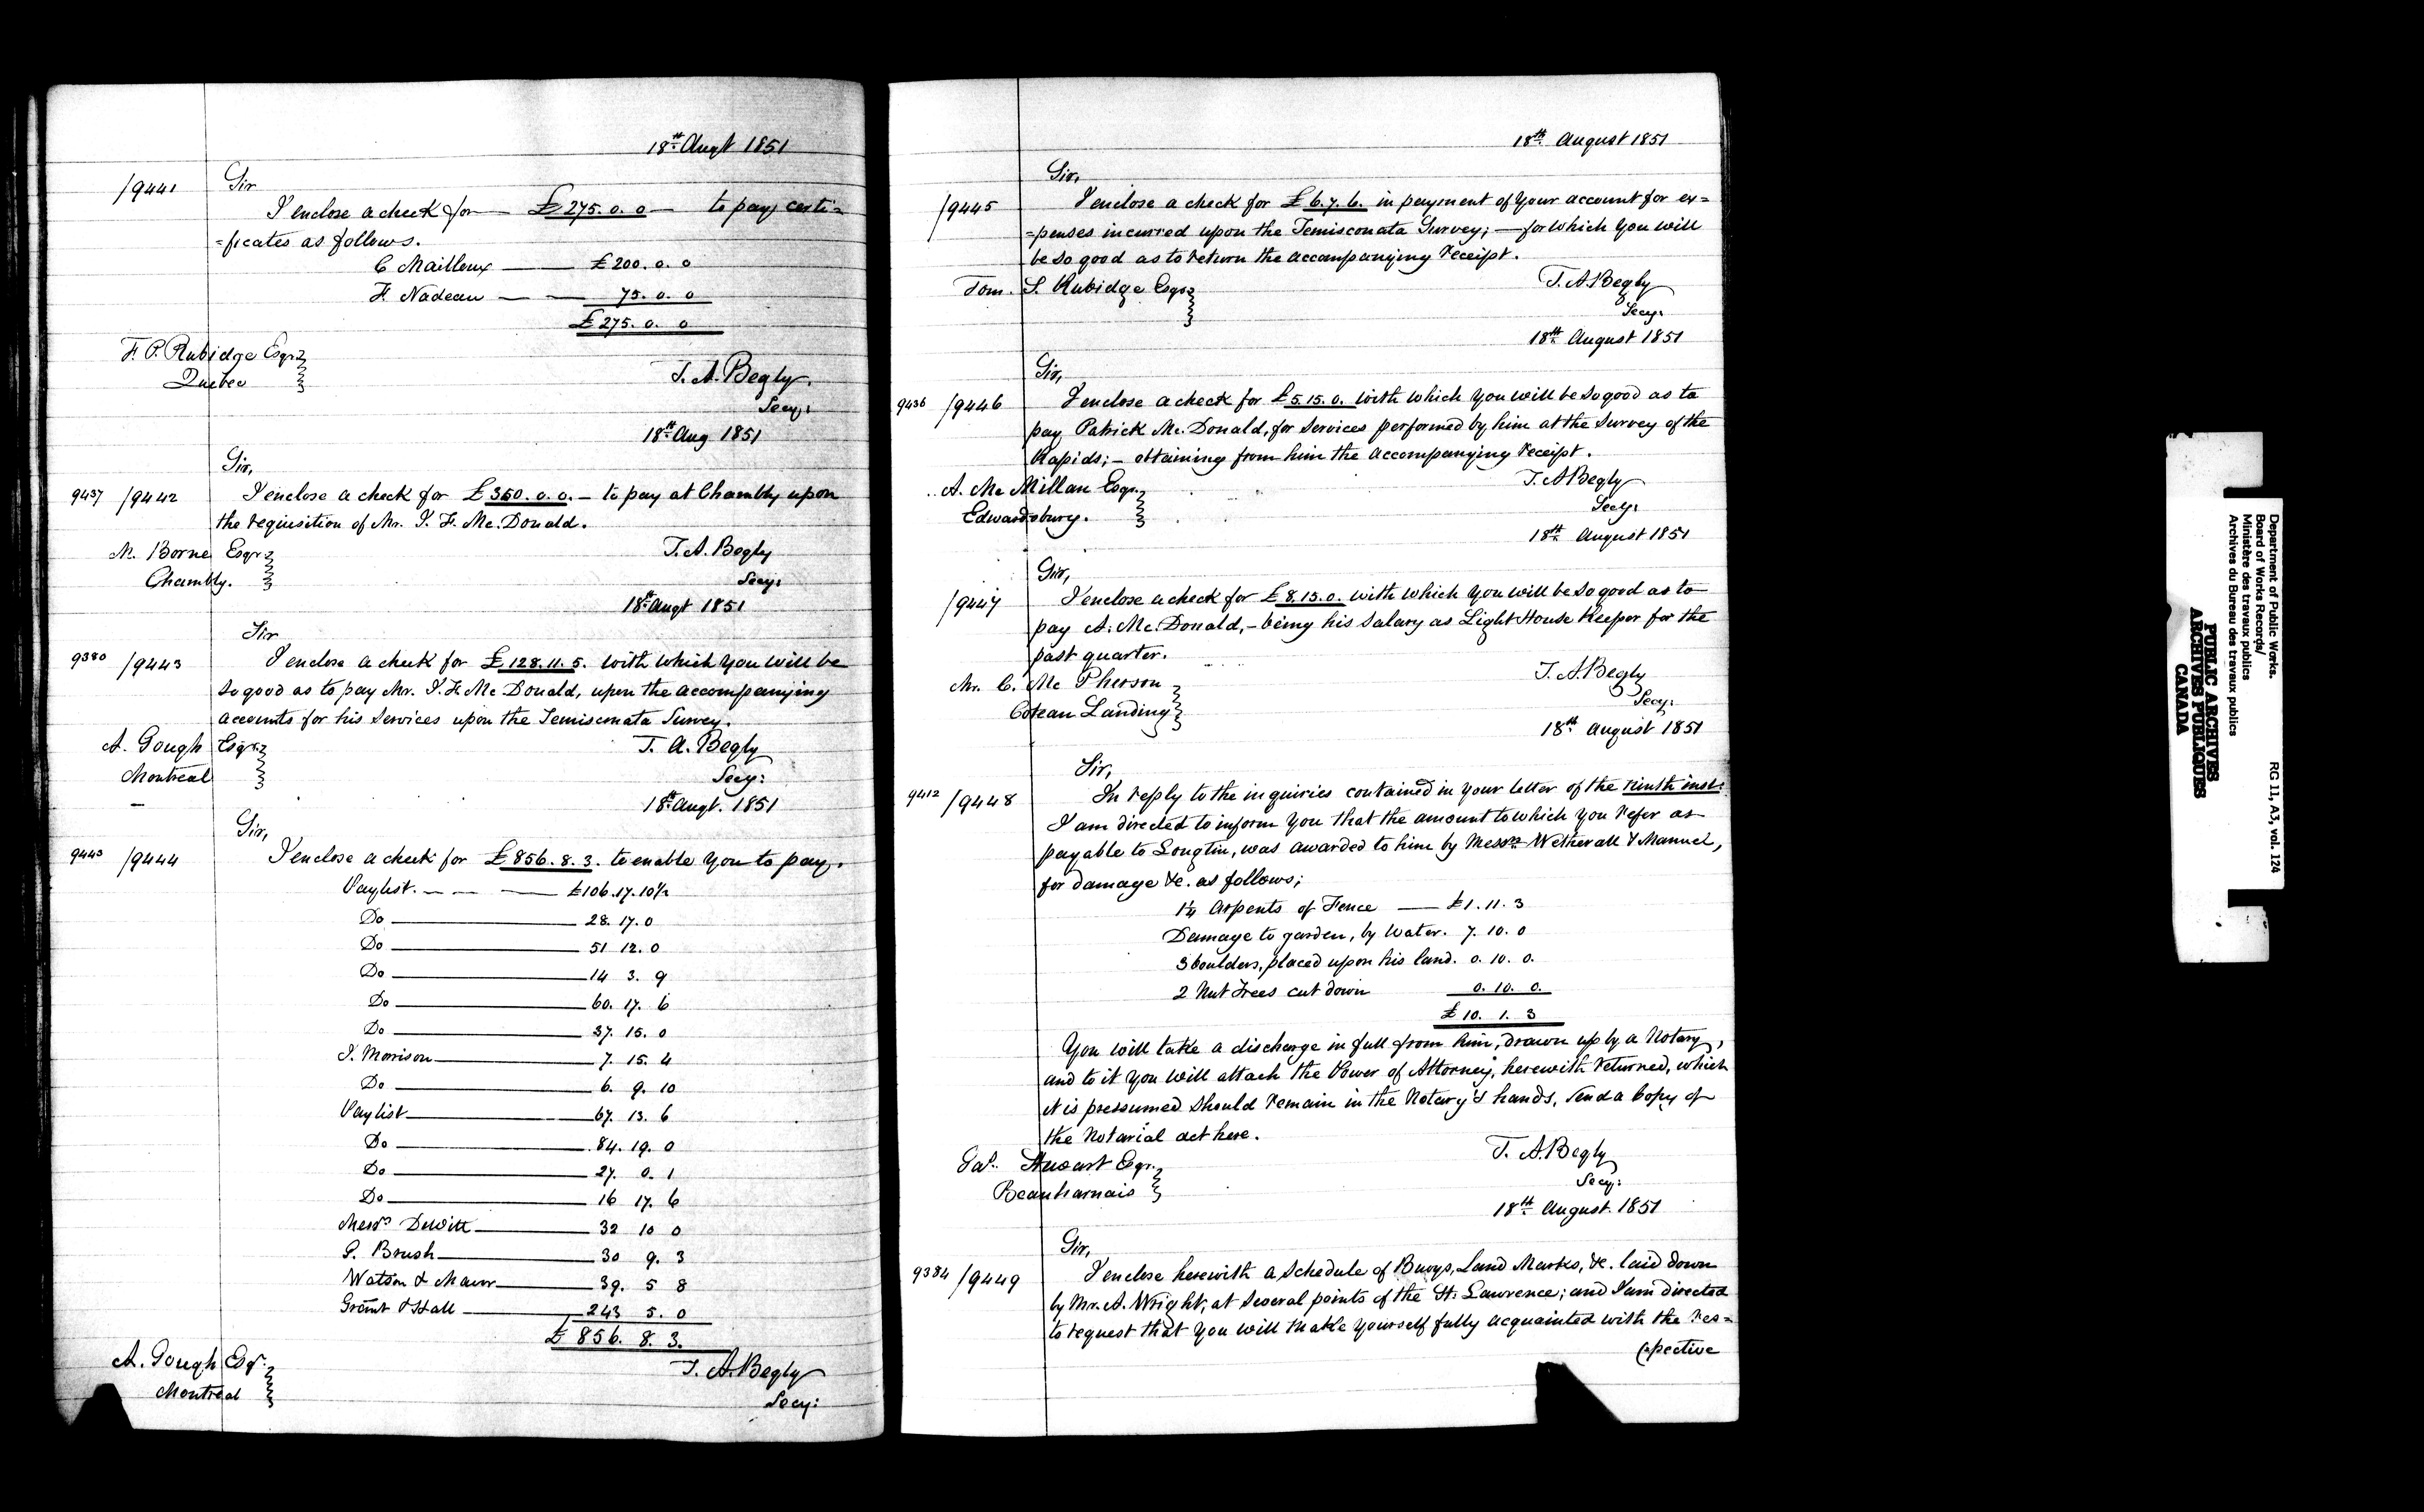 18th Augt 1851
/9441 Sir
I enclose a check for — £275.0.0 — to pay certi=
=ficates as follows.
C Mailloux — £200.0.0
F. Nadeau — — 75.0.0
£275.0.0
F. P. Rubidge Esqr
Quebec
T. A. Begly.
Secy:
18th Aug 1851
Sir,
9437 /9442 I enclose a check for £350.0.0. – to pay at Chambly upon
the requisition of Mr. J. F. Mc.Donald.
M. Borne Esqr
Chambly.
T. A. Begly
Secy:
18th Augt 1851
Sir
9380 /9443 I enclose a check for £128.11.5. with which you will be
so good as to pay Mr. J. F. Mc Donald, upon the accompanying
accounts for his services upon the Temisconata Survey.
A. Gough Esqr
Montreal
T. A. Begly
Secy:
18th Augt. 1851
Sir,
9443 /9444 I enclose a check for £856.8.3. to enable you to pay.
Paylist. — — — £106.17.10½
Do — 28.17.0
Do — 51 12.0
Do — 14 3. 9
Do — 60. 17. 6
Do — 37. 15. 0
J. Morrison — 7. 15. 4
Do — 6. 9. 10
Paylist — 67. 13. 6
Do — 84. 19. 0
Do — 27. 0. 1
Do — 16 17. 6
Messrs DeWitt — 32 10 0
G. Brush — 30 9. 3
Watson & — 39. 5 8
Grant & Hall — 243 5. 0
£ 856. 8. 3.
A. Gough Esqr.
Montreal
T. A. Begly
Secy:
18th August 1851
Sir,
/9445 I enclose a check for £6.7.6. in payment of your account for ex=
=penses incurred upon the Temisconata Survey; — for which you will
be so good as to return the accompanying receipt.
Tom. S. Rubidge Esqr
T. A. Begly
Secy:
18th August 1851
Sir,
9436 /9446 I enclose a check for £5.15.0. with which you will be so good as to
pay Patrick Mc. Donald, for services performed by him at the survey of the
Rapids; – obtaining from him the accompanying receipt.
A. Mc Millan Esqr.
Edwardsbury.
T. A Begly
Secy:
18th August 1851
Sir,
/9447 I enclose a check for £8.15.0. with which you will be so good as to
pay A. Mc. Donald, – being his salary as Light House Keeper for the
past quarter.
Mr. C. Mc Pherson
Coteau Landing
T. A. Begly
Secy:
18th August 1851
Sir,
9412 /9448 In reply to the inquiries contained in your letter of the ninth inst:
I am directed to inform you that the amount to which you refer as
payable to Longtin, was awarded to him by Messrs Wetherall & Manuel,
for damage &c. as follows;
1¼ Arpents of Fence — £1.11.3
Damage to garden, by water. 7.10.0
3 boulders, placed upon his land. 0.10.0.
2 Nut Trees cut down 0.10.0.
£ 10. 1. 3
You will take a discharge in full from him, drawn up by a Notary,
and to it you will attach the Power of Attorney, herewith returned, which
it is pressumed should remain in the Notary's hands, send a copy of
the Notarial act here.
Stewart Esqr.
Beauharnais
T. A. Begly
Secy:
18th August. 1851
Sir,
9384 /9449 I enclose herewith a schedule of Buoys, Land Marks, &c. laid down
by Mr. A. Wright, at several points of the St. Lawrence; and I am directed
to request that you will make yourself fully acquainted with the res=
(pective
Department of Public Works.
Board of Works Records/
Ministère des travaux publics
Archives du Bureau des travaux publics
RG 11, A3, vol. 124
PUBLIC ARCHIVES
ARCHIVES PUBLIQUES
CANADA